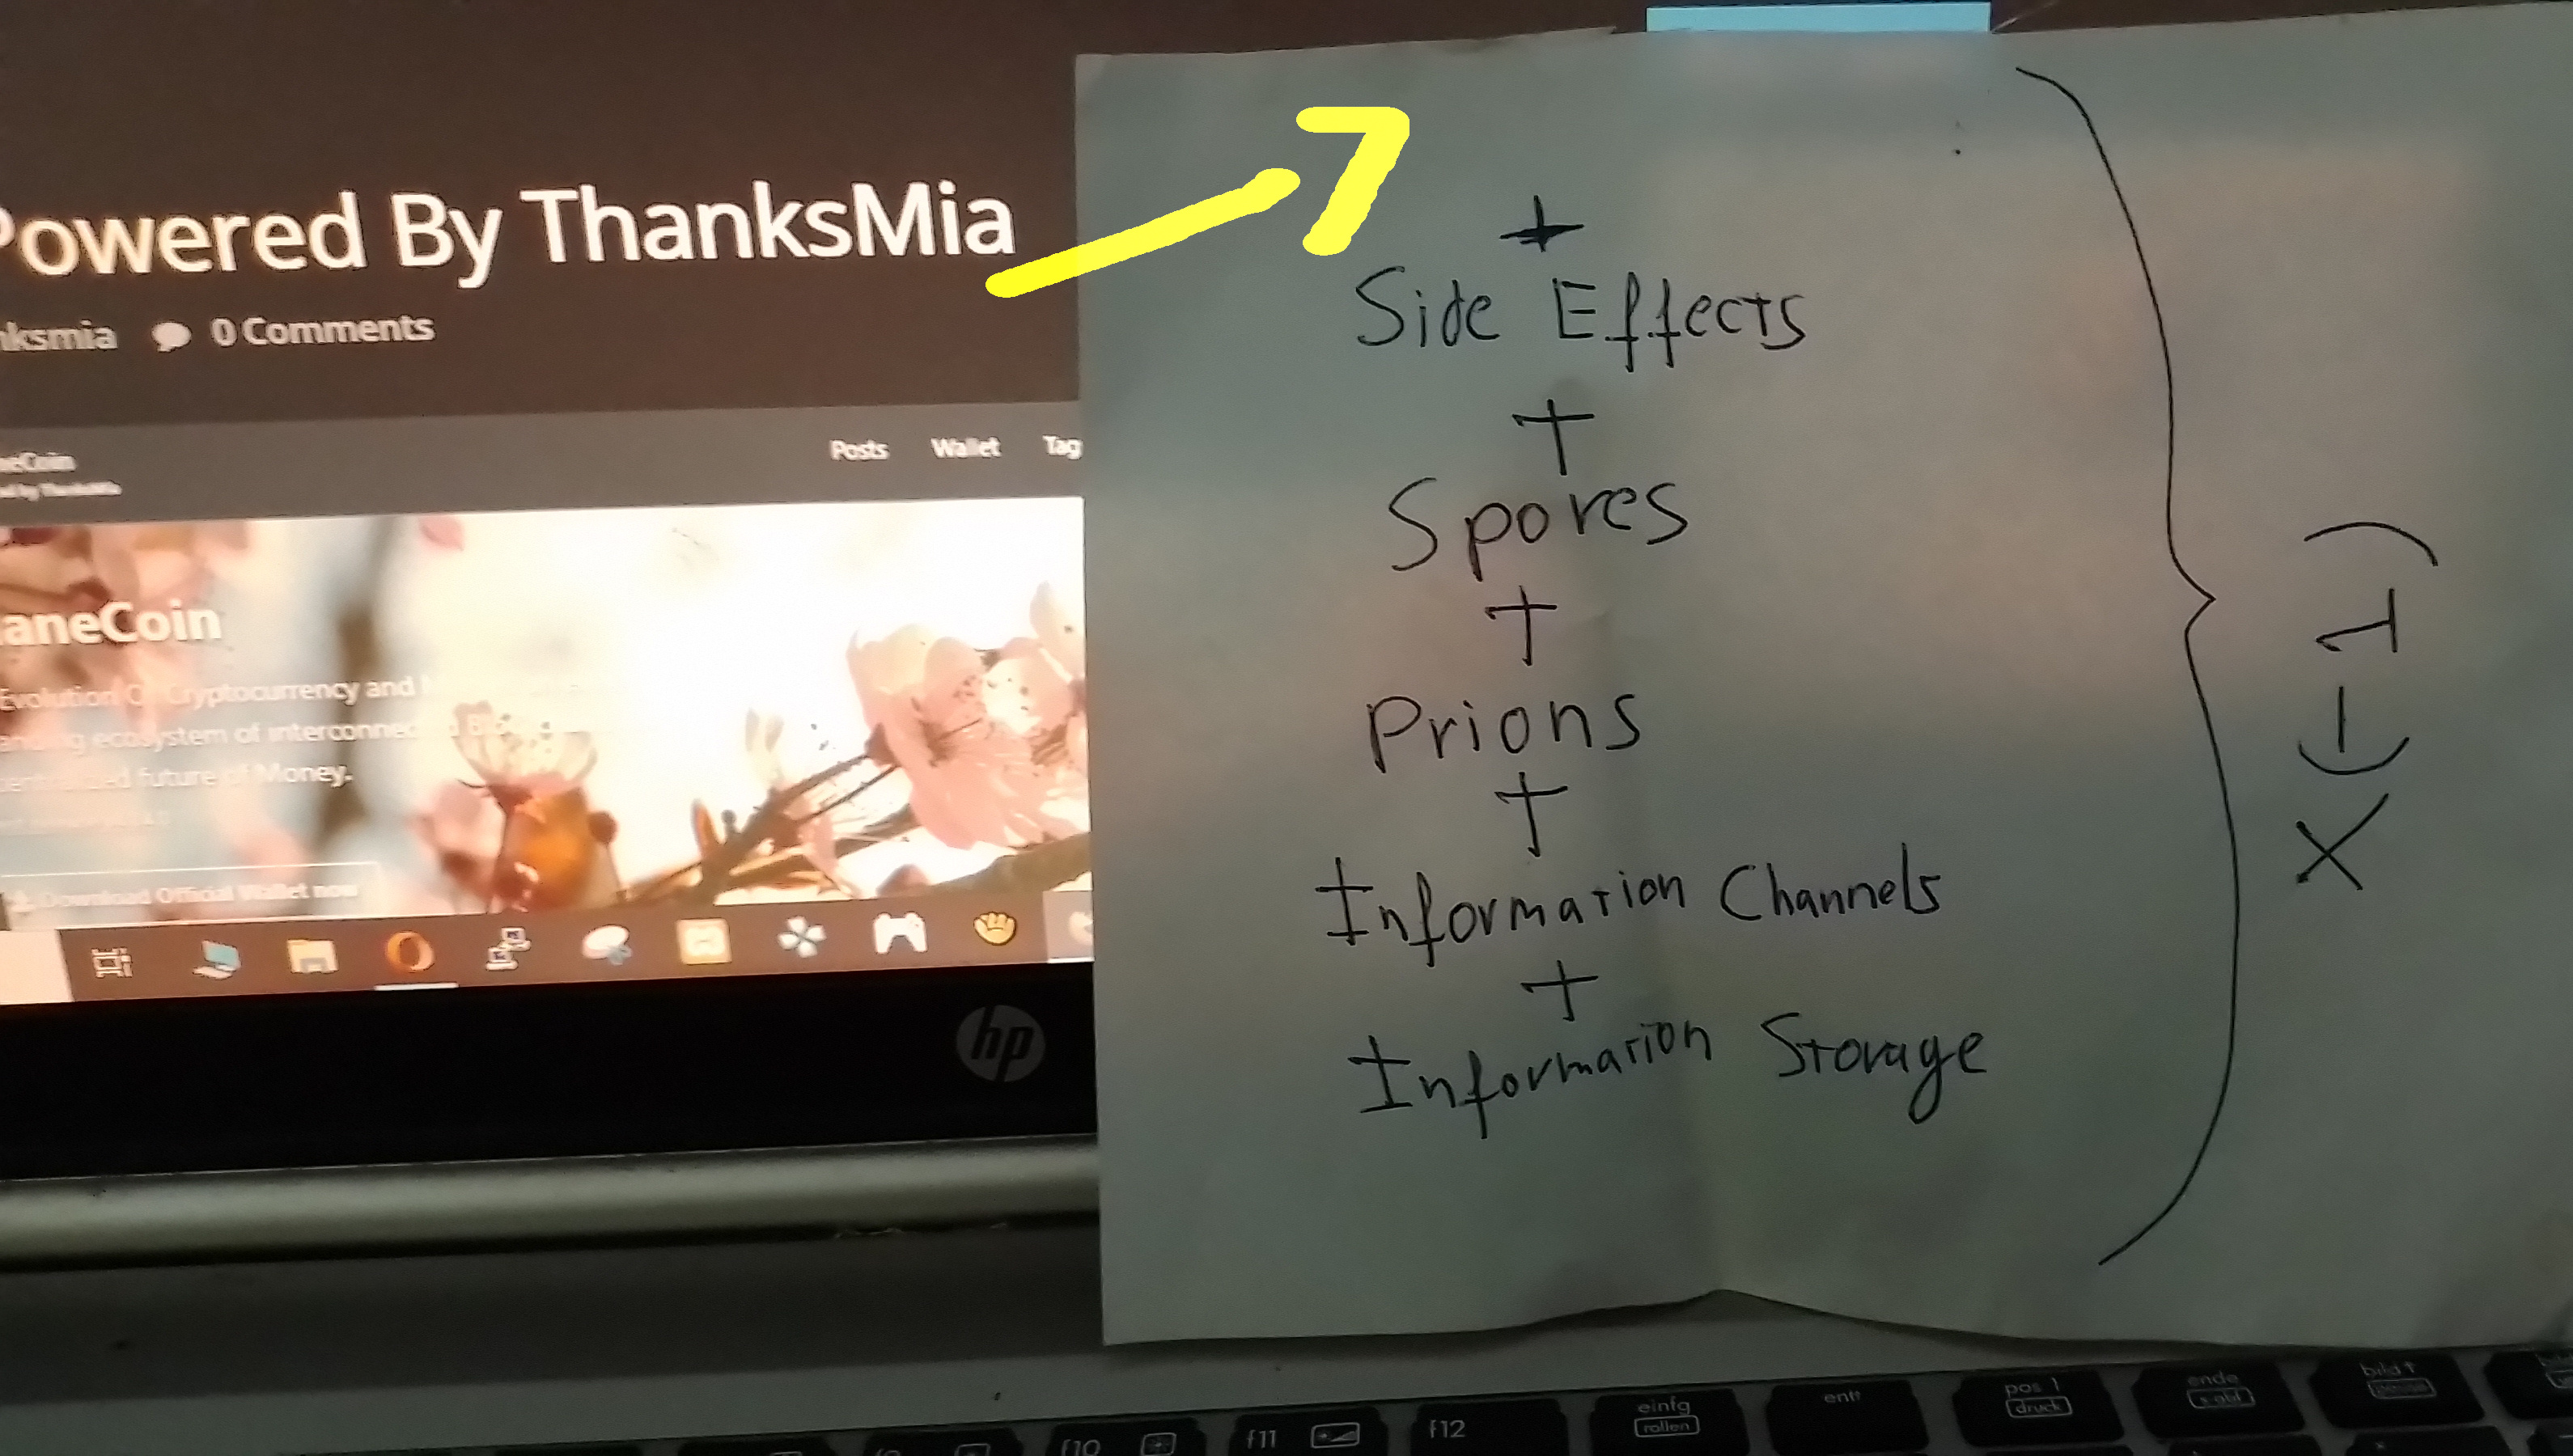 Powered By ThanksMia
ksmia 0 Comments
neCoin
Posts Wallet Tag
by ThanksMia
aneCoin
Evolution Of Cryptocurrency and
ecosystem of interconnected
future of Money.
Download Official Wallet now
hp
+
Side Effects
+
Spores
+
Prions
+
Information Channels
+
Information Storage
X(-1)
f10 f11 f12
einfg
rollen
entf
pos 1
druck
ende
s-abf
bild↑
pause